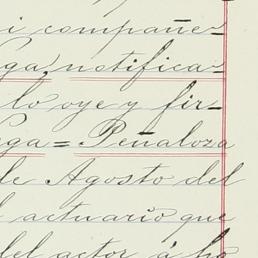 i compañe-
ga notifica-
lo oye y fir-
ega = Peñaloza
de Agosto del
l actuario que
del actor, á